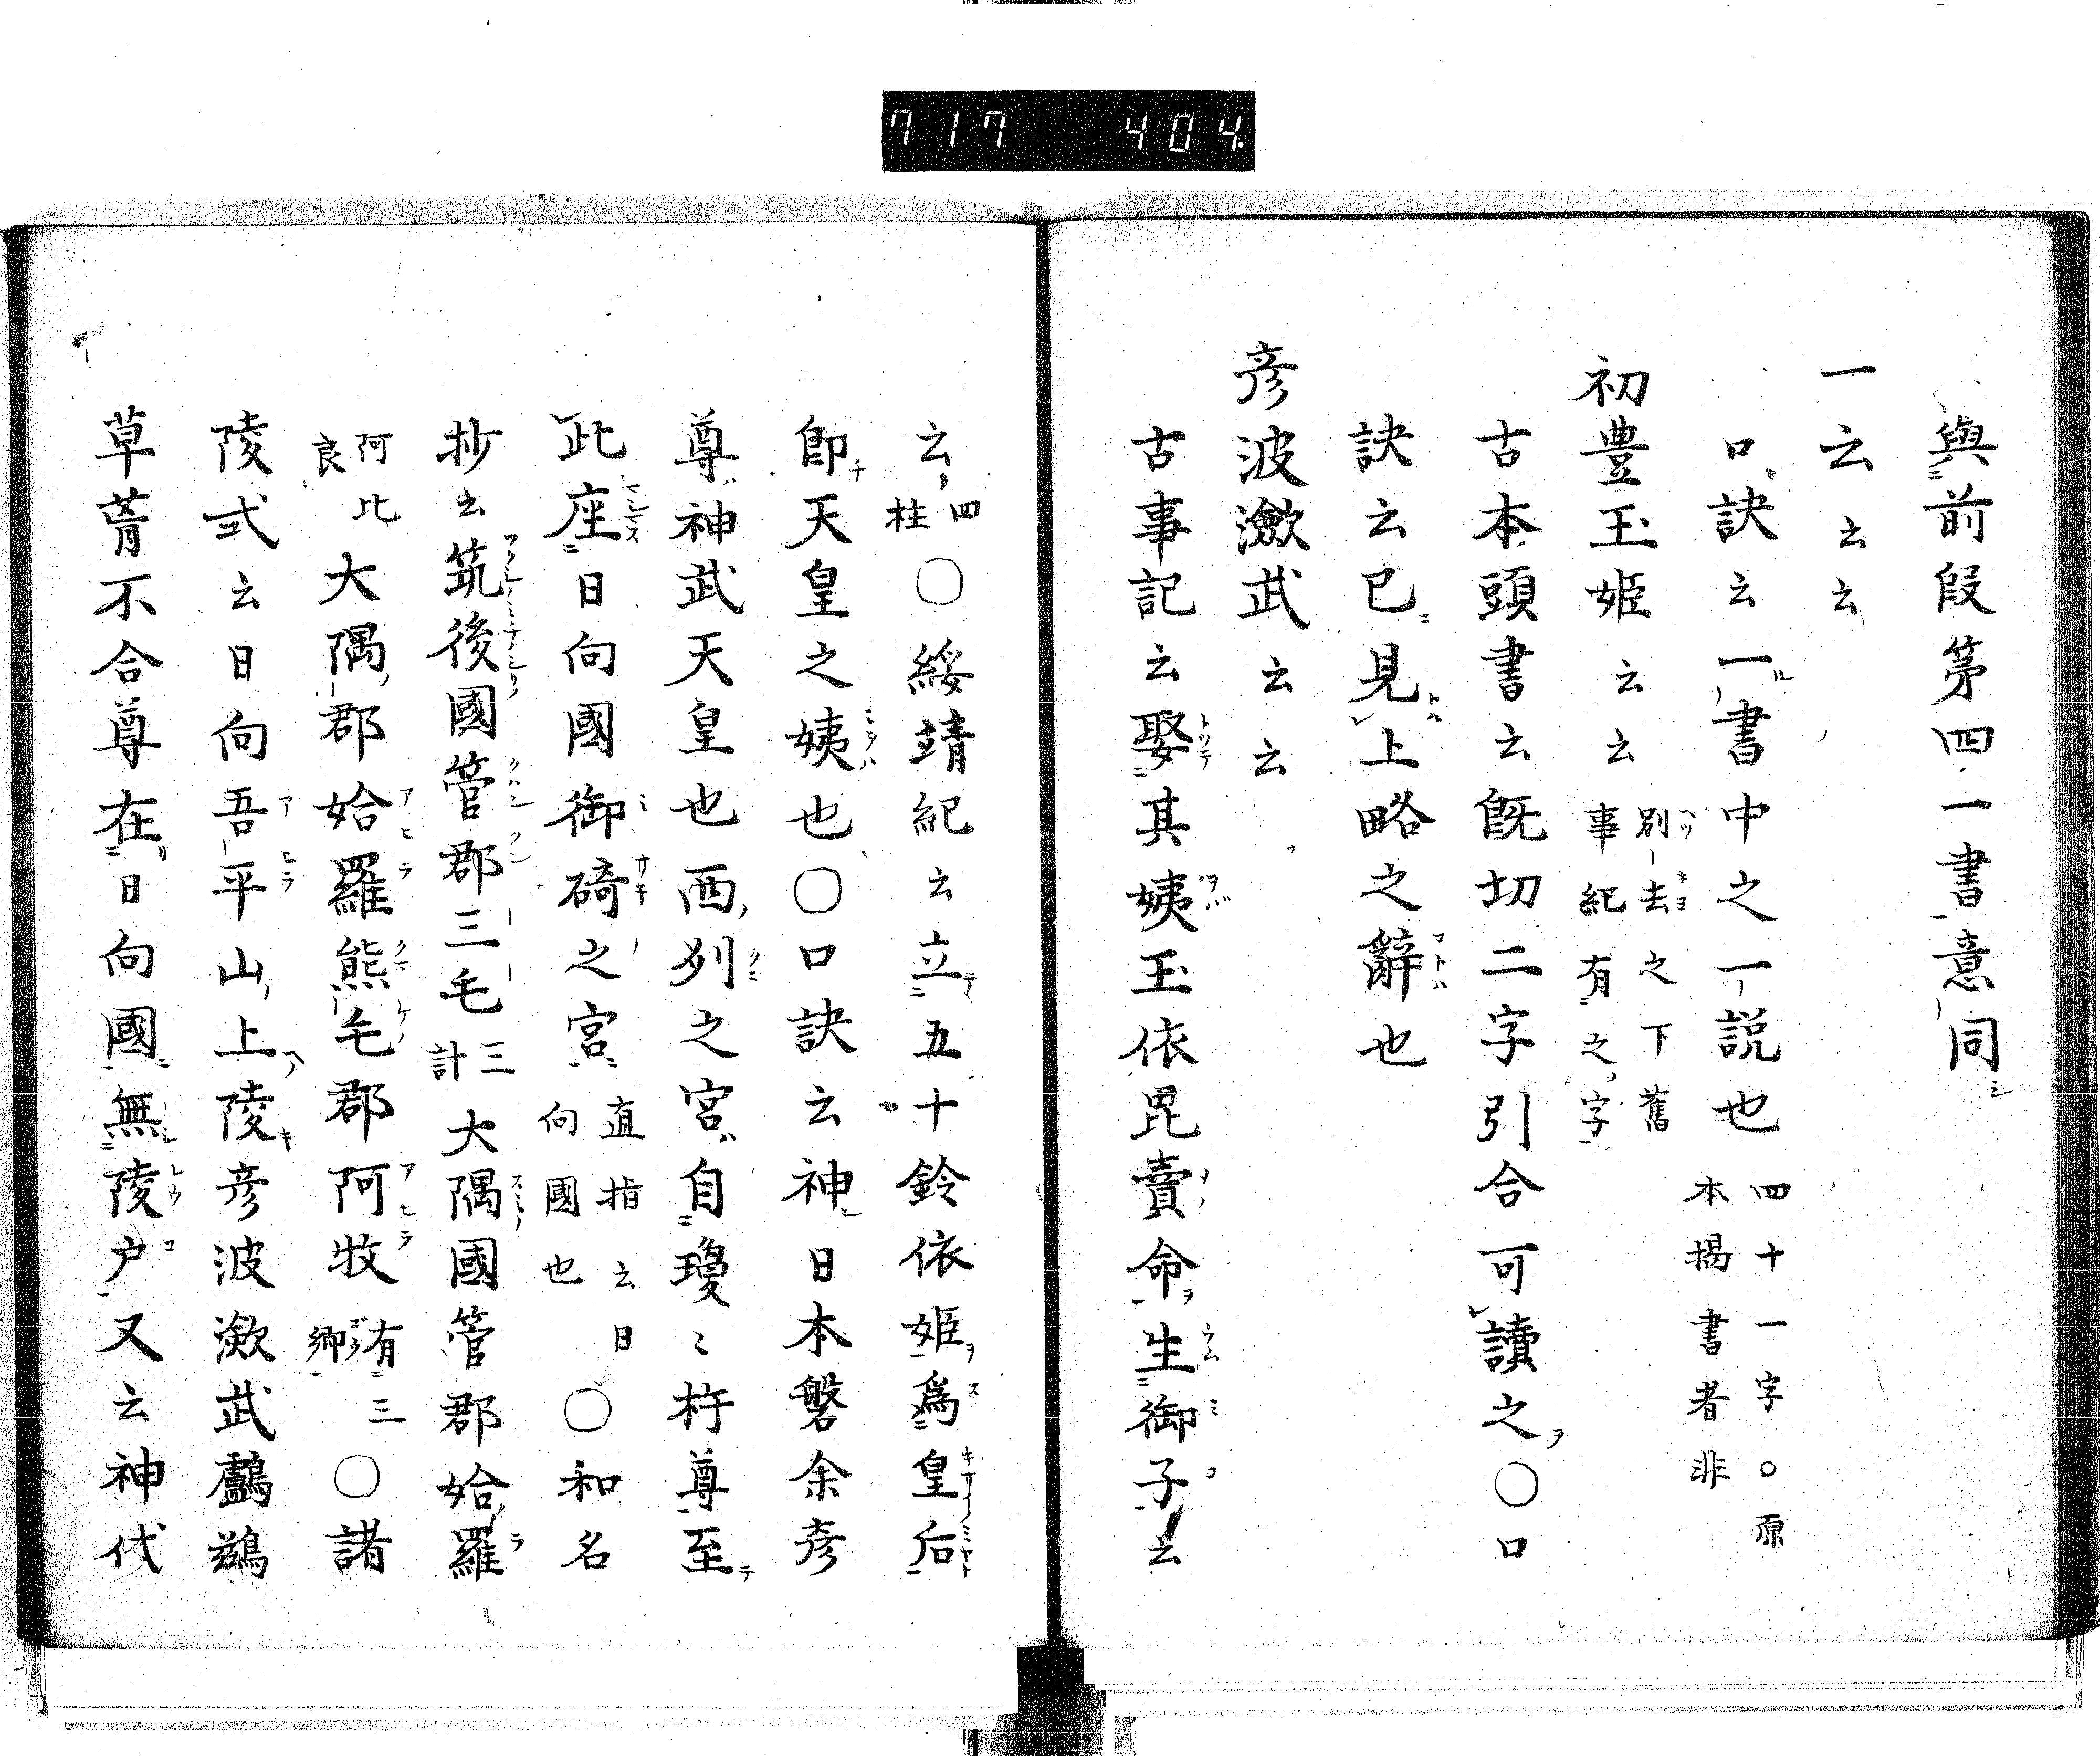 717 404
與前段第四一書意同
一云云云
口訣云一書中之一説也四十一字○原本揭書者非
初豊玉姫云云別去之下舊事紀有之字
古本頭書云既切二字引合可讀之○口
訣云已見上略之辭也
彦波瀲武云云
古事記云娶其姨玉依毘賣命生御子云
云四柱○綏靖紀云立五十鈴依姫爲皇后
即天皇之姨也○口訣云神日本磐余彦
尊神武天皇也西列之宮自瓊〻杵尊至
此座日向國御碕之宮直指云日向國也○和名
抄云筑後國管郡三毛三計大隅國管郡姶羅
阿比良大隅郡姶羅熊毛郡阿牧有三郷○諸
陵式云日向吾平山上陵彦波瀲武鸕鷀
草葺不合尊在日向國無陵户又云神代